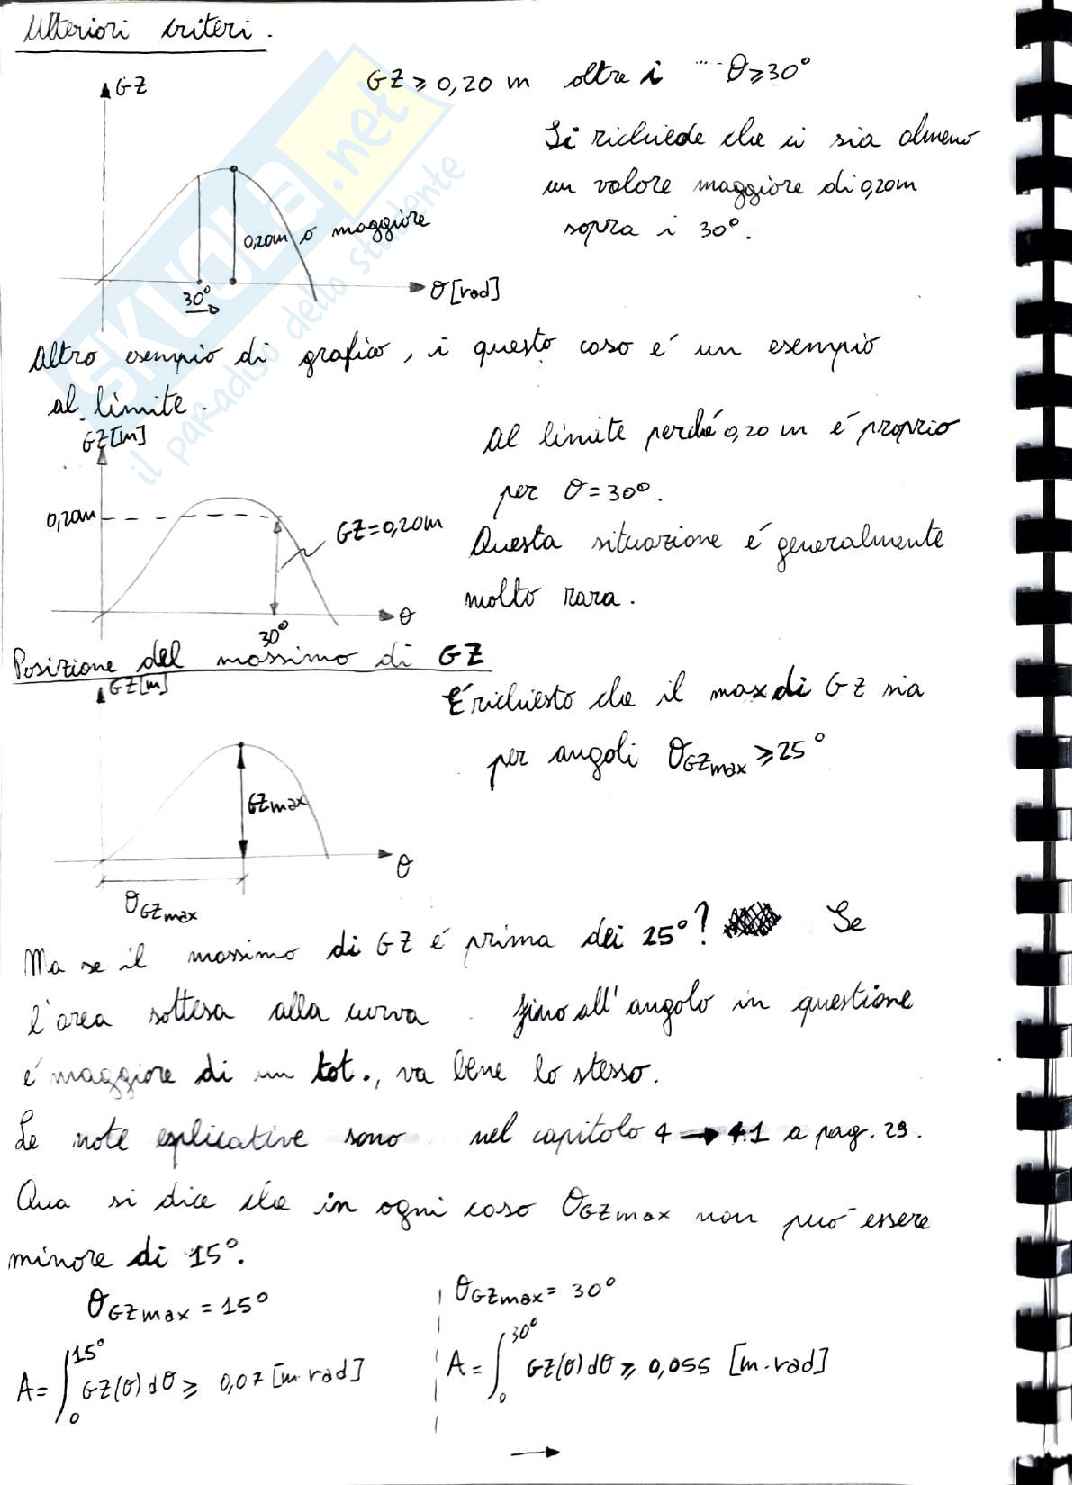 Ulteriori criteri.
GZ
GZ ≥ 0,20 m oltre i ... θ ≥ 30°
Si richiede che ci sia almeno
un valore maggiore di 0,20m
sopra i 30°.
0,20m o maggiore
30°
θ [rad]
SKUOLA.net
il paradiso dello studente
Altro esempio di grafico, i questo caso é un esempio
al limite.
GZ[m]
Al limite perché 0,20 m é proprio
per θ = 30°.
0,20m
GZ=0,20m
Questa situazione é generalmente
molto rara.
θ
30°
Posizione del massimo di GZ
GZ[m]
É richiesto che il max di GZ sia
per angoli θGZmax ≥ 25°
GZmax
θ
θGZmax
Ma se il massimo di GZ é prima dei 25°? Se
l'area sottesa alla curva fino all'angolo in questione
é maggiore di un tot., va bene lo stesso.
Le note esplicative sono nel capitolo 4 → 4.1 a pag. 29.
Qua si dice che in ogni caso θGZmax non può essere
minore di 15°.
θGZmax = 15°
A = ∫₀^15° GZ(θ) dθ ≥ 0,07 [m·rad]
θGZmax = 30°
A = ∫₀^30° GZ(θ) dθ ≥ 0,055 [m·rad]
→